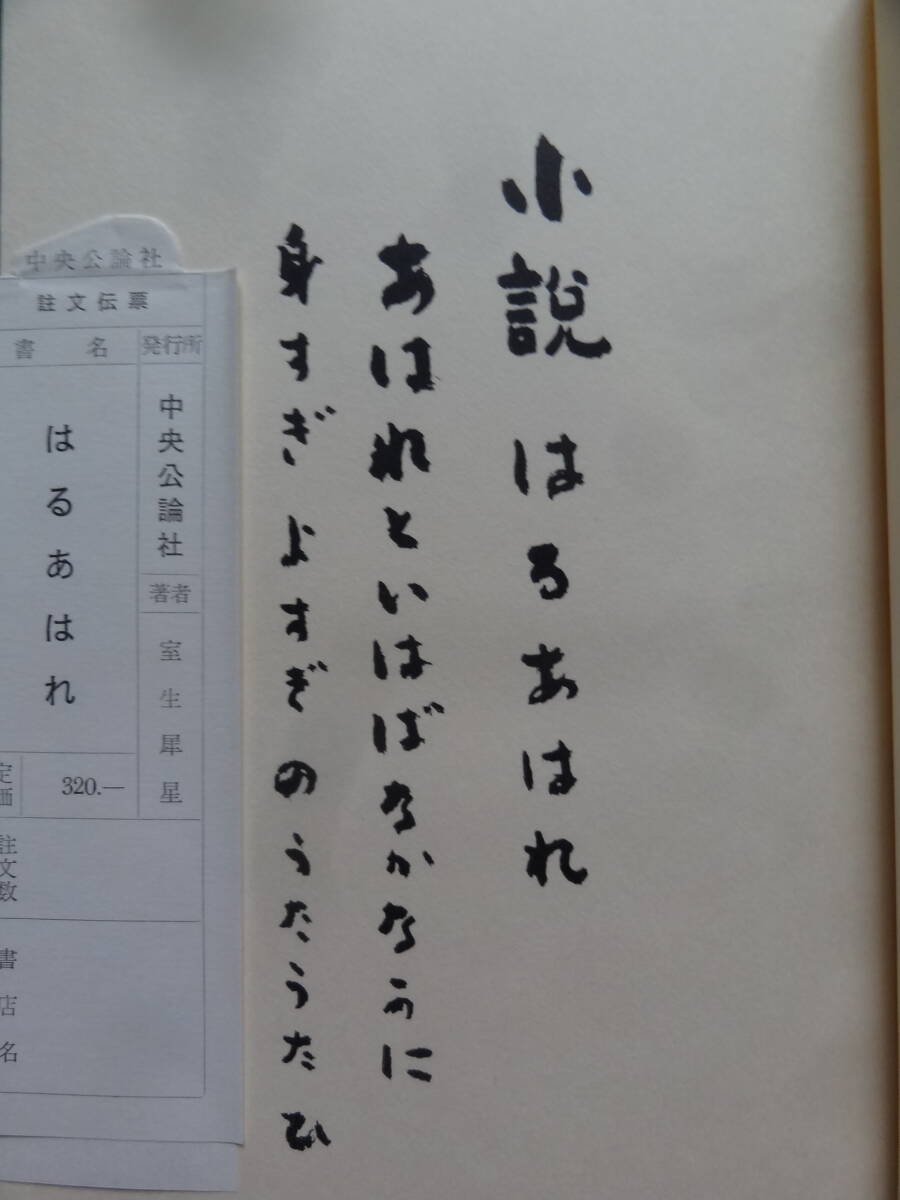 小説 はるあはれ
あはれといはばなかなかに
身すぎよすぎのうたうたひ
中央公論社
註文伝票
書名
発行所
はるあはれ
中央公論社
著者
室生犀星
定価
320.—
註文数
書店名